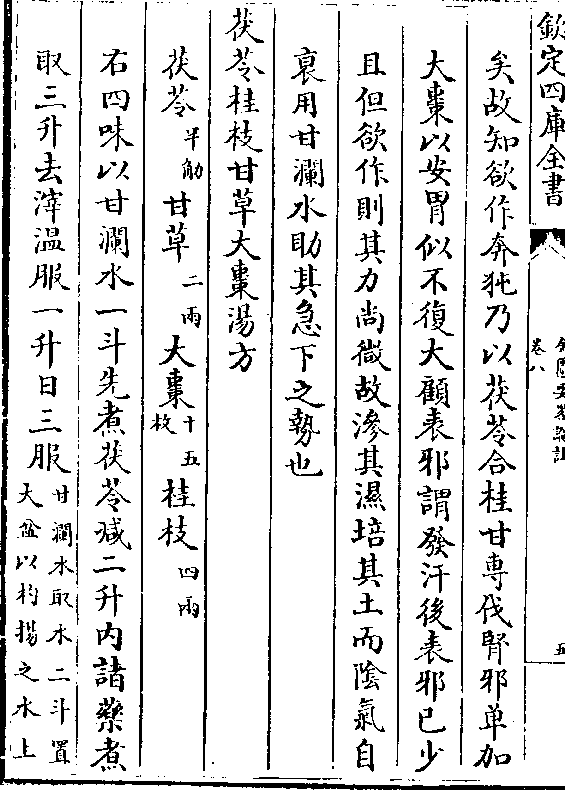 欽定四庫全書
卷八
五
矣故知欲作奔㹠乃以茯苓合桂甘專伐腎邪单加
大棗以安胃似不復大顧表邪謂發汗後表邪已少
且但欲作則其力尚微故滲其濕培其土而陰氣自
裒用甘瀾水助其急下之勢也
茯苓桂枝甘草大棗湯方
茯苓半觔 甘草二兩 大棗十五枚 桂枝四兩
右四味以甘瀾水一斗先煮茯苓减二升内諸藥煮
取三升去滓溫服一升日三服甘瀾水取水二斗置大盆以杓揚之水上